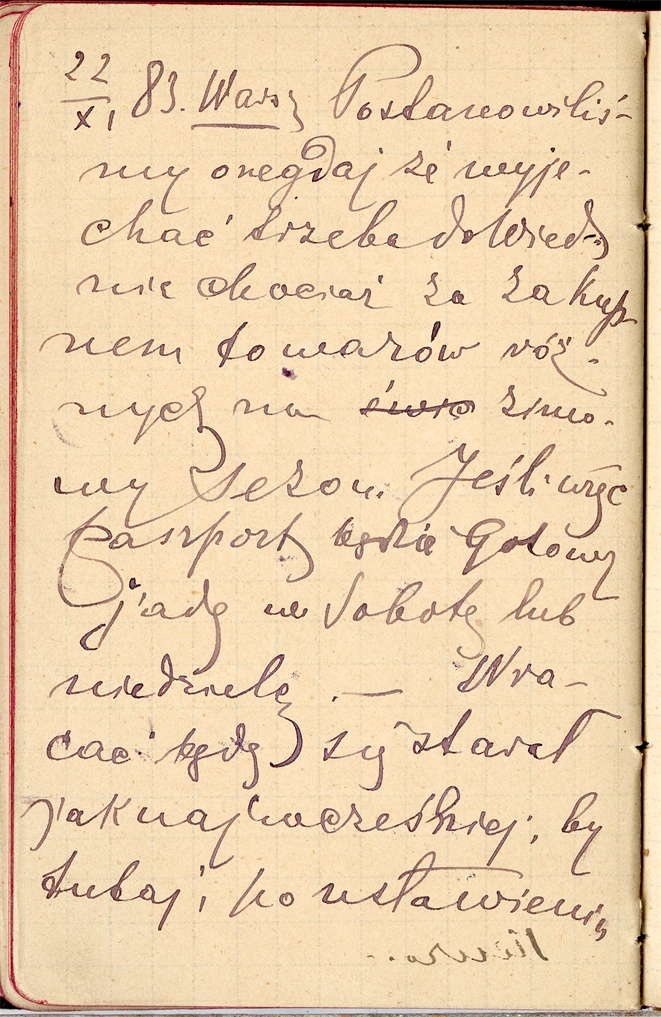 22/XI 83. Warsz Postanowiliś-
my onegdaj że wyje-
chać trzeba do Wied-
nie chociaż za zakup-
nem towarów róż-
nych na zimo-
wy sezon. Jeśli więc
passport będzie Gotowy
jadę w Sobotę lub
niedzielę. — Wra-
cać będę się starał
jaknajwcześniej; by
tutaj, po ustawieniu